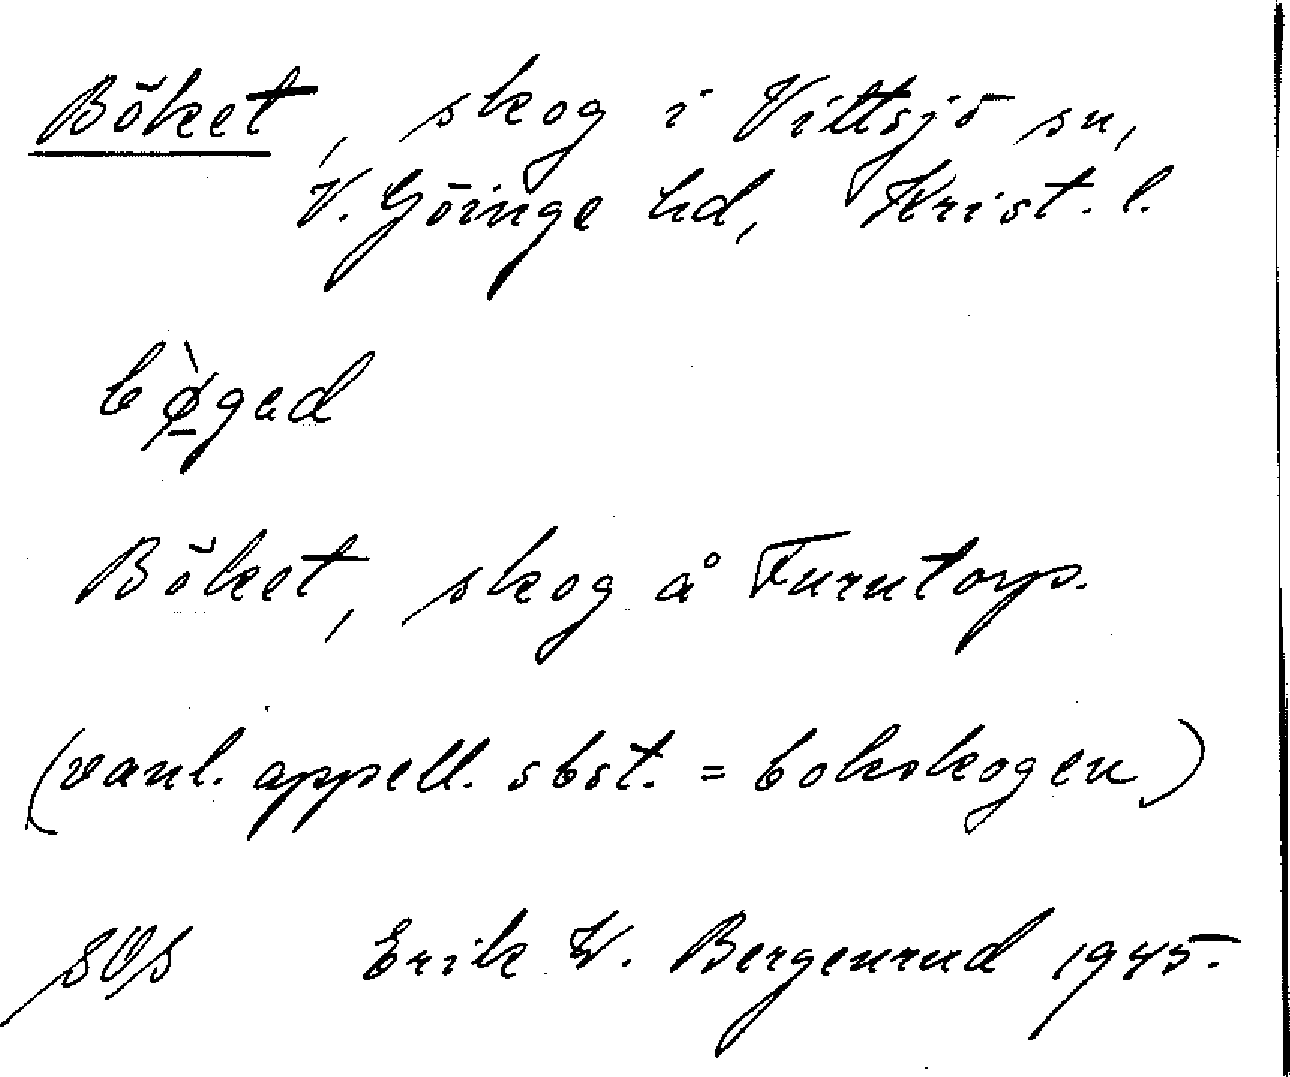 Böket, skog i Vittsjö sn,
V. Göinge hd, Krist. l.
bø̀gad
Böket, skog å Furutorp.
(vanl. appell. sbst. = bokskogen)
Erik W. Bergenrud 1945.